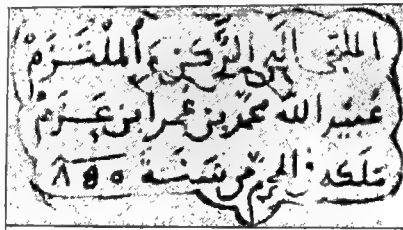 الملتجى الى الركن و الملتزم
عبيد الله محمد بن عمر ابن عزم
ملكه المحرم من سنة